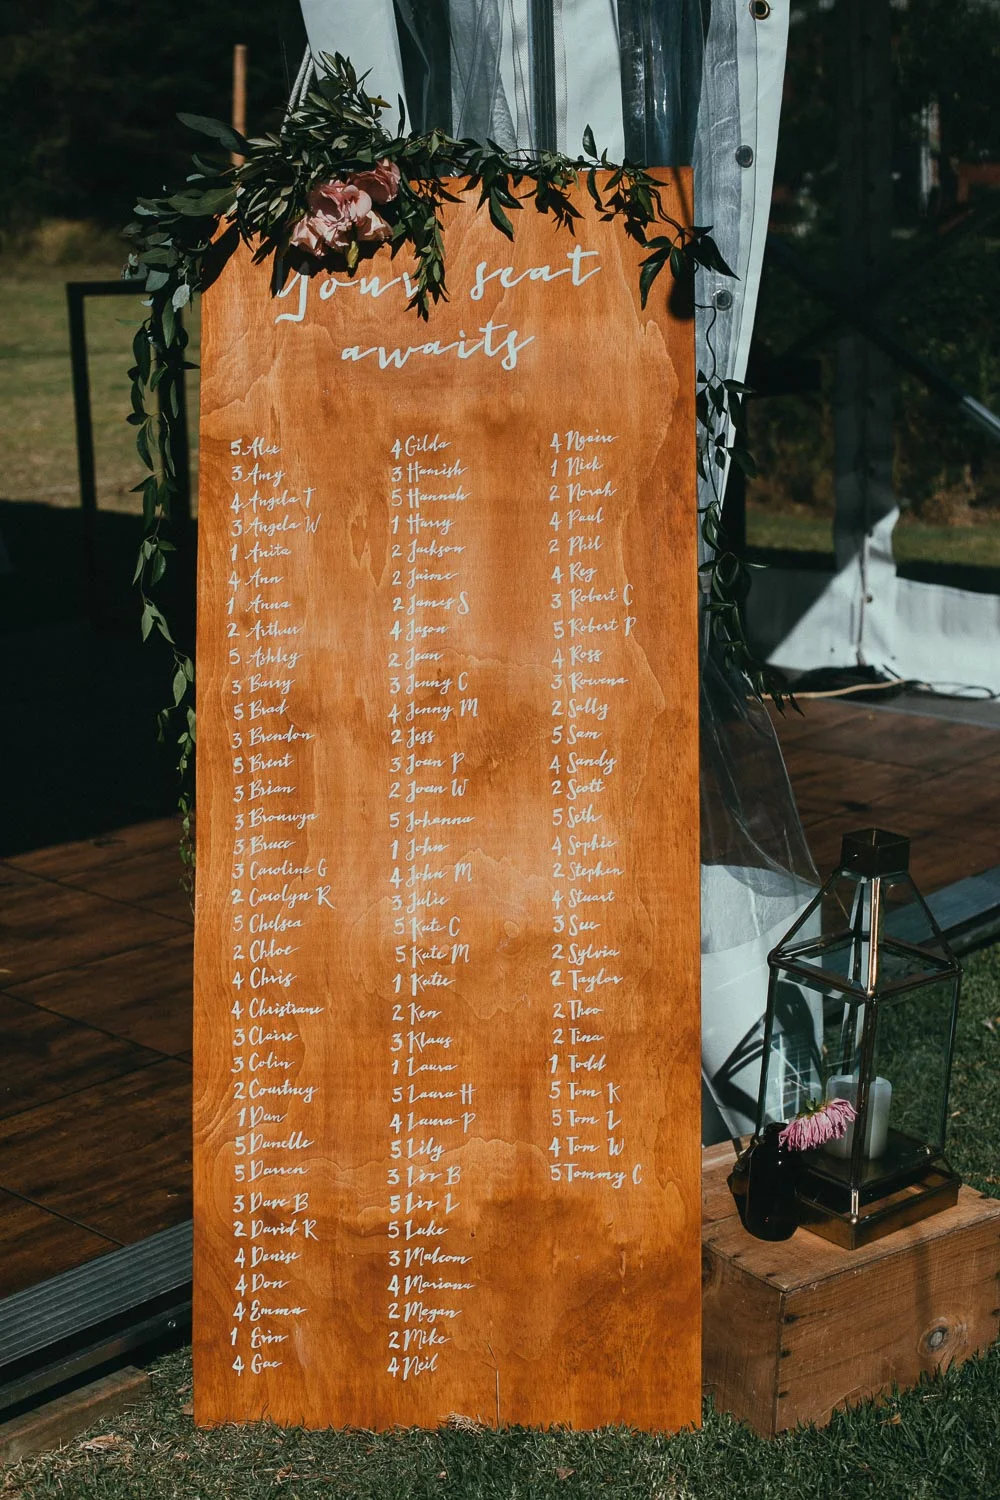 Your seat
awaits
5 Alec
3 Amy
4 Angela T
3 Angela W
1 Anita
4 Ann
1 Anna
2 Arthur
5 Ashley
3 Barry
5 Brad
3 Brendon
5 Brent
3 Brian
3 Bronwyn
3 Bruce
3 Caroline G
2 Carolyn R
5 Chelsea
2 Chloe
4 Chris
4 Christiane
3 Claire
3 Colin
2 Courtney
1 Dan
5 Danelle
5 Darren
3 Dave B
2 David R
4 Denise
4 Don
4 Emma
1 Erin
4 Gae
4 Gilda
3 Hamish
5 Hannah
1 Harry
2 Jackson
2 Jaime
2 James S
4 Jason
2 Jean
3 Jenny C
4 Jenny M
2 Jess
3 Joan P
2 Joan W
5 Johanna
1 John
4 John M
3 Julie
5 Kate C
5 Kate M
1 Katie
2 Ken
3 Klaus
1 Laura
5 Laura H
4 Laura P
5 Lily
3 Liz B
5 Liz L
5 Luke
3 Malcom
4 Mariana
2 Megan
2 Mike
4 Neil
4 Ngaire
1 Nick
2 Norah
4 Paul
2 Phil
4 Reg
3 Robert C
5 Robert P
4 Ross
3 Rowena
2 Sally
5 Sam
4 Sandy
2 Scott
5 Seth
4 Sophie
2 Stephen
4 Stuart
3 Sue
2 Sylvia
2 Taylor
2 Theo
2 Tina
1 Todd
5 Tom K
5 Tom L
4 Tom W
5 Tommy C